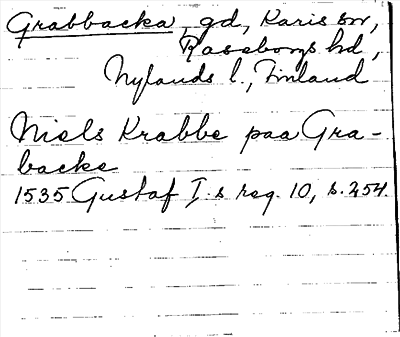 Grabbacka, gd, Karis sn,
Raseborgs hd,
Nylands l., Finland
Niels Krabbe paa Gra-
backe
1535 Gustaf I.s reg. 10, s. 254.